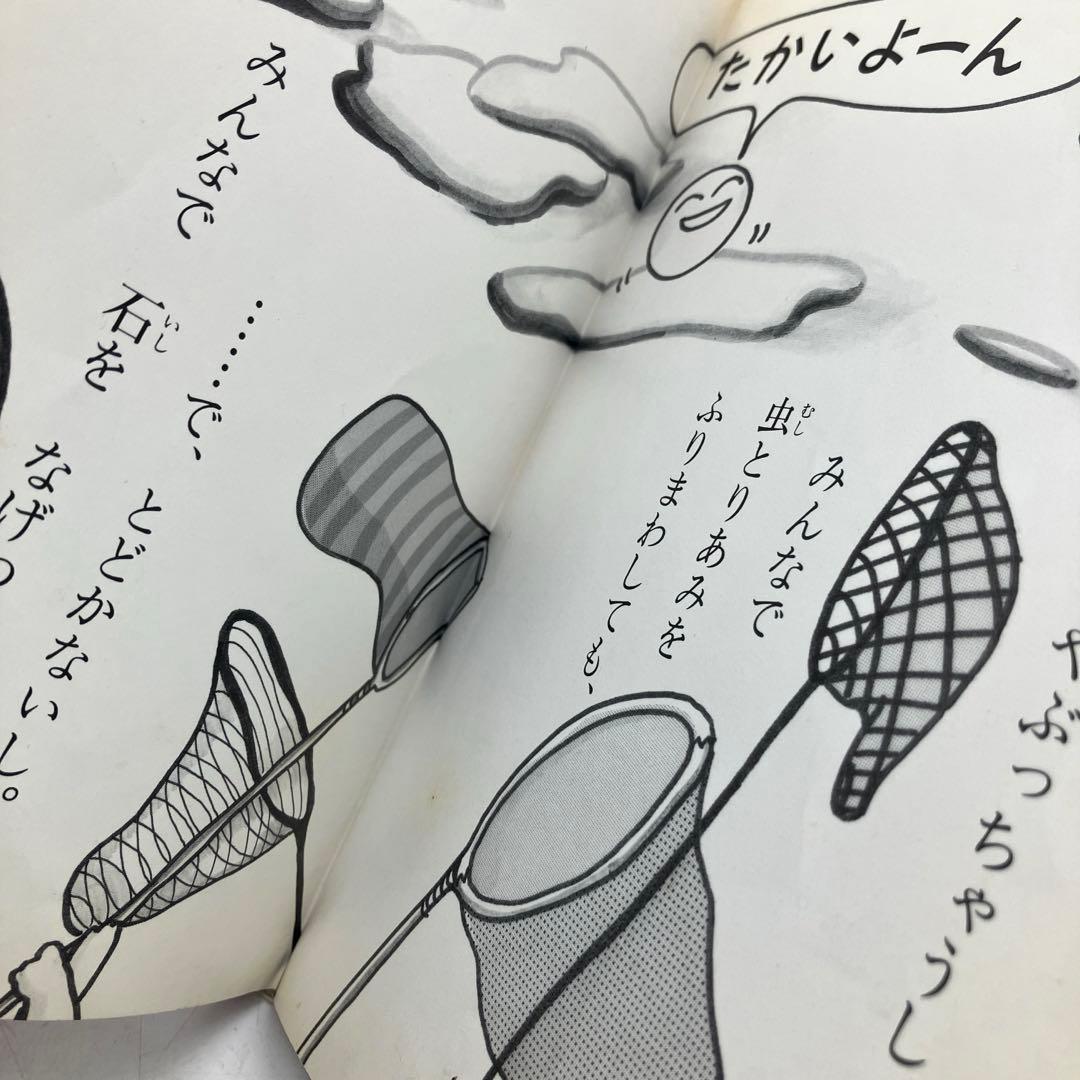 たかいよーん
やぶっちゃうし
みんなで
虫とりあみを
むし
ふりまわしても、
……で、 とどかないし。
みんなで 石を なげつ
いし